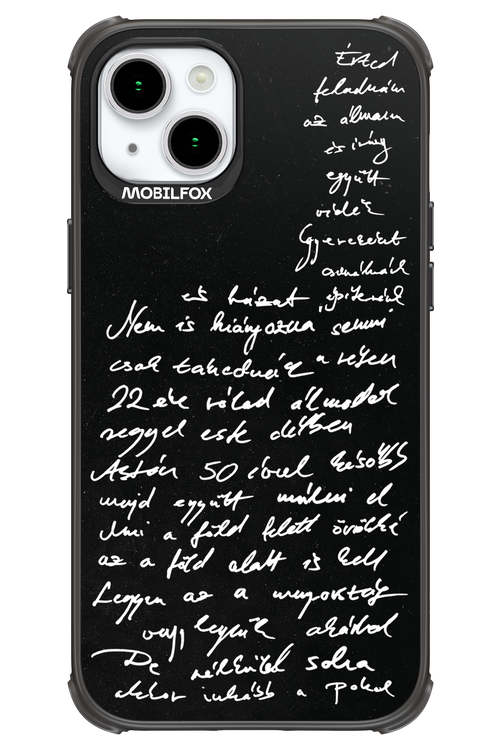 MOBILFOX
Érted
feladnám
az álmaim
és így
együtt
Gyerekeket
csinálnánk
és házat építenénk
Nem is hiányozna semmi
csak takednék a réten
22 éve rólad álmodok
reggel este délben
Aztán 50 évvel később
majd együtt múlni el
Ami a föld felett örökké
az a föld alatt is kell
Legyen az a mennyország
vagy legyünk akárhol
De nélküled soha
akkor inkább a pokol